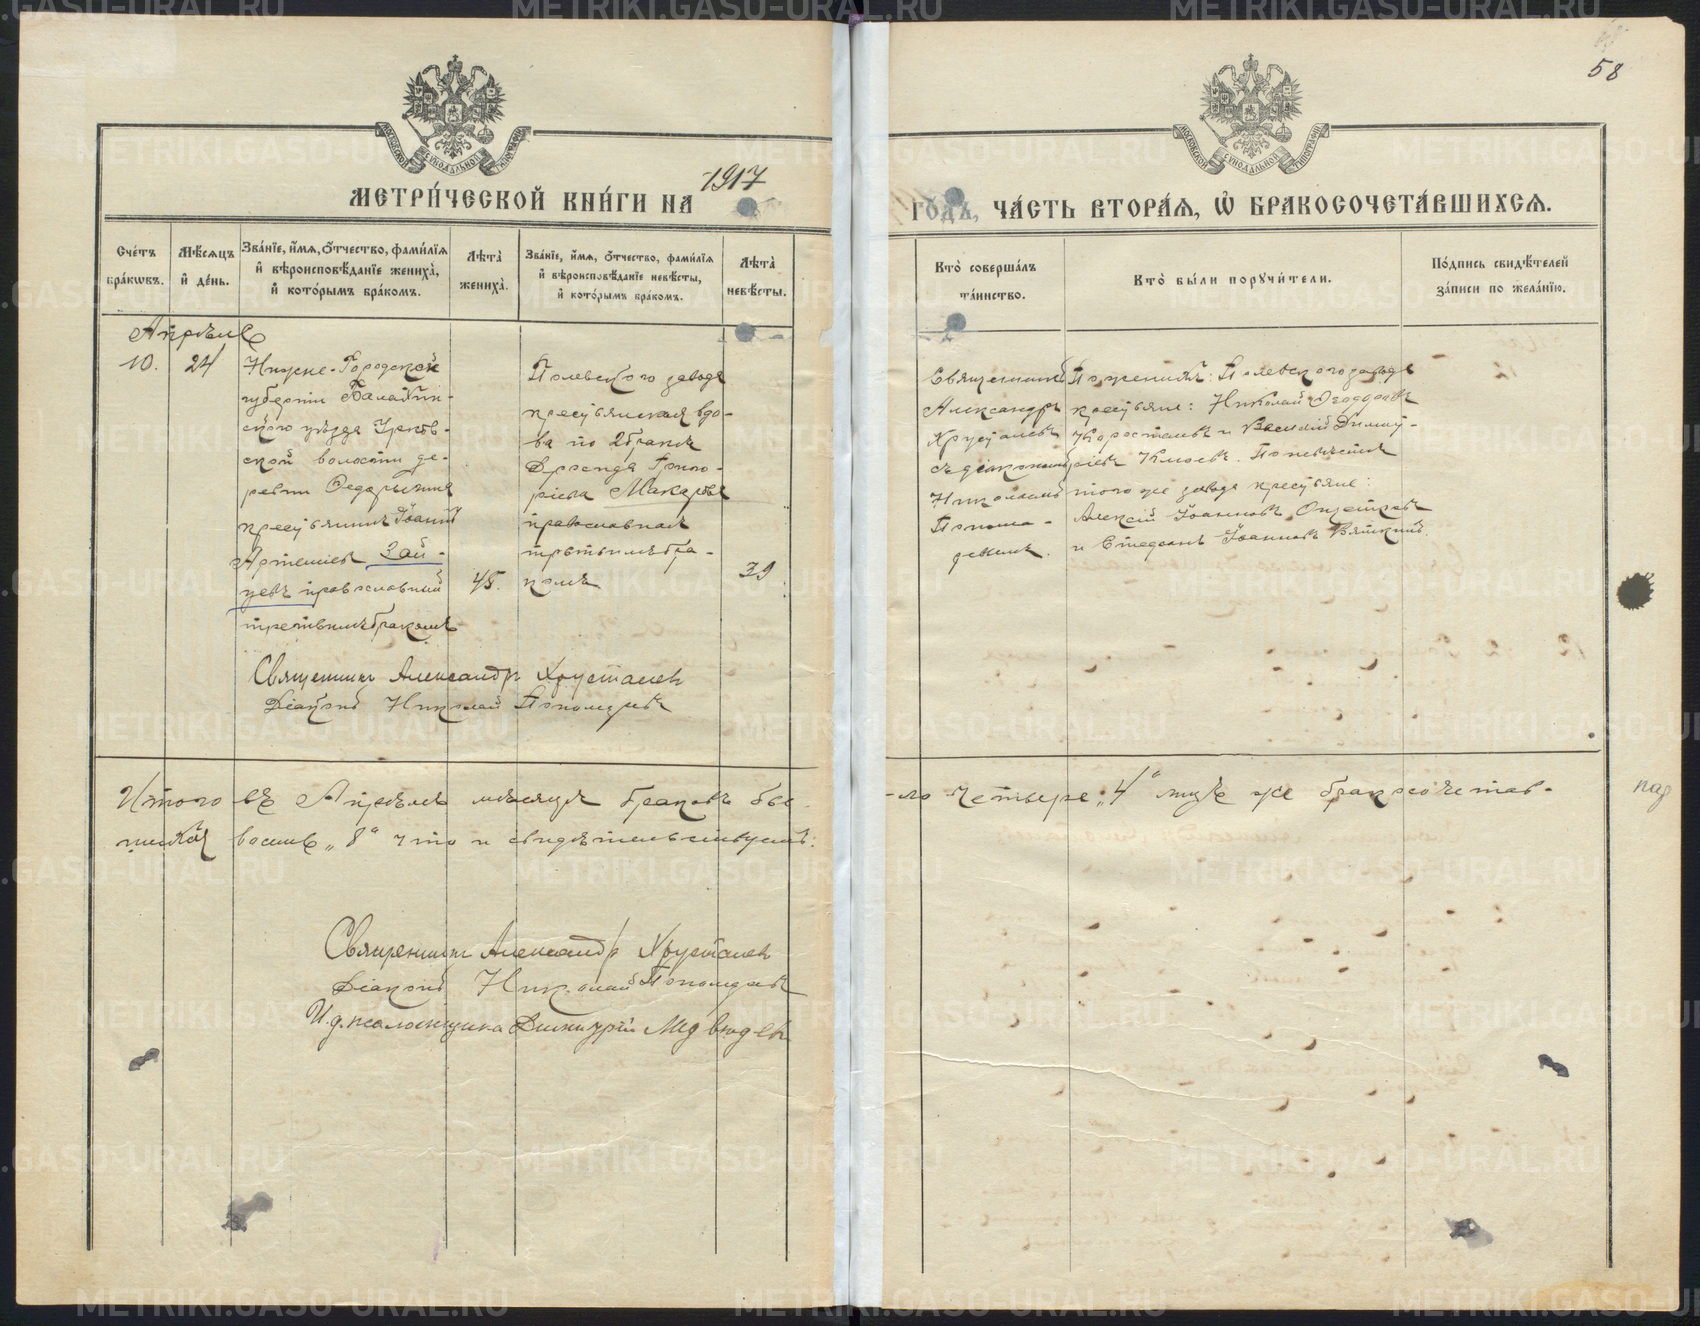 58
МОСКОВСКОЙ СѴНОДАЛЬНОЙ ТИПОГРАФІИ
МОСКОВСКОЙ СѴНОДАЛЬНОЙ ТИПОГРАФІИ
МЕТРИ́ЧЕСКОЙ КНИ́ГИ НА 1917
ГО́ДЪ, ЧА́СТЬ ВТОРА́Я, Ѡ҆ БРАКОСОЧЕТА́ВШИХСЯ.
Сче́тъ бра́кѡвъ.
Мѣ́сяцъ и҆ де́нь.
Зва́нїе, и҆́мя, ѻ҆́тчество, фами́лїя и҆ вѣроисповѣ́данїе жениха̀, и҆ кото́рымъ бра́комъ.
Лѣ́та̀ жениха̀.
Зва́нїе, и҆́мя, ѻ҆́тчество, фами́лїя и҆ вѣроисповѣ́данїе невѣ́сты, и҆ кото́рымъ бра́комъ.
Лѣ́та̀ невѣ́сты.
Кто̀ соверша́лъ та́инство.
Кто̀ бы́ли порꙋчи́тели.
По́дпись свидѣ́телей за́писи по жела́нїю.
Апрѣль
10. 24
Нижне-Городской
губерніи Балахнин-
скаго уѣзда
ской волости де-
ревни
крестьянинъ Іоаннъ
Артемиевъ Зай-
цевъ православный
третьимъ бракомъ
45.
Полевского завода
крестьянская вдо-
ва по 2 бракѣ
Григо-
рьева Макарова
православная
третьимъ бра-
комъ
39
Священникъ
Александръ
Хрусталевъ
съ діакономъ
Николаемъ
Понома-
ревымъ.
По женихѣ: Полевского завода
крестьяне: Николай Ѳеодоровъ
Коросталевъ и Василій Димит-
ріевъ. По невѣстѣ
того же завода крестьяне:
Алексій Іоанновъ
и Стефанъ Іоанновъ Вяткинъ.
Священникъ Александръ Хрусталев
Діаконъ Николай Пономаревъ
Итого въ Апрѣлѣ мѣсяцѣ браковъ бы-
-ло четыре „4“ лицъ же бракосочетав-
шихся восемь „8“ что и свидѣтельствуемъ:
Священникъ Александръ Хрусталев
Діаконъ Николай Пономаревъ
И. д. псаломщика Димитрій Медведев
METRIKI.GASO-URAL.RU